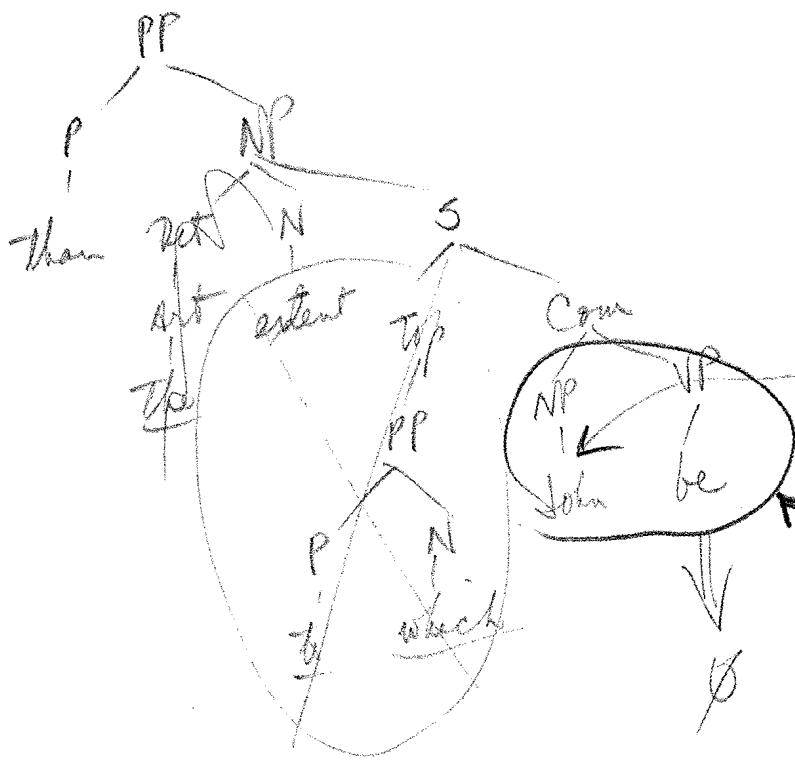 PP
P NP
Than Det N S
Art extent Top Com
The NP VP
PP
John be
P N
to which
Ø